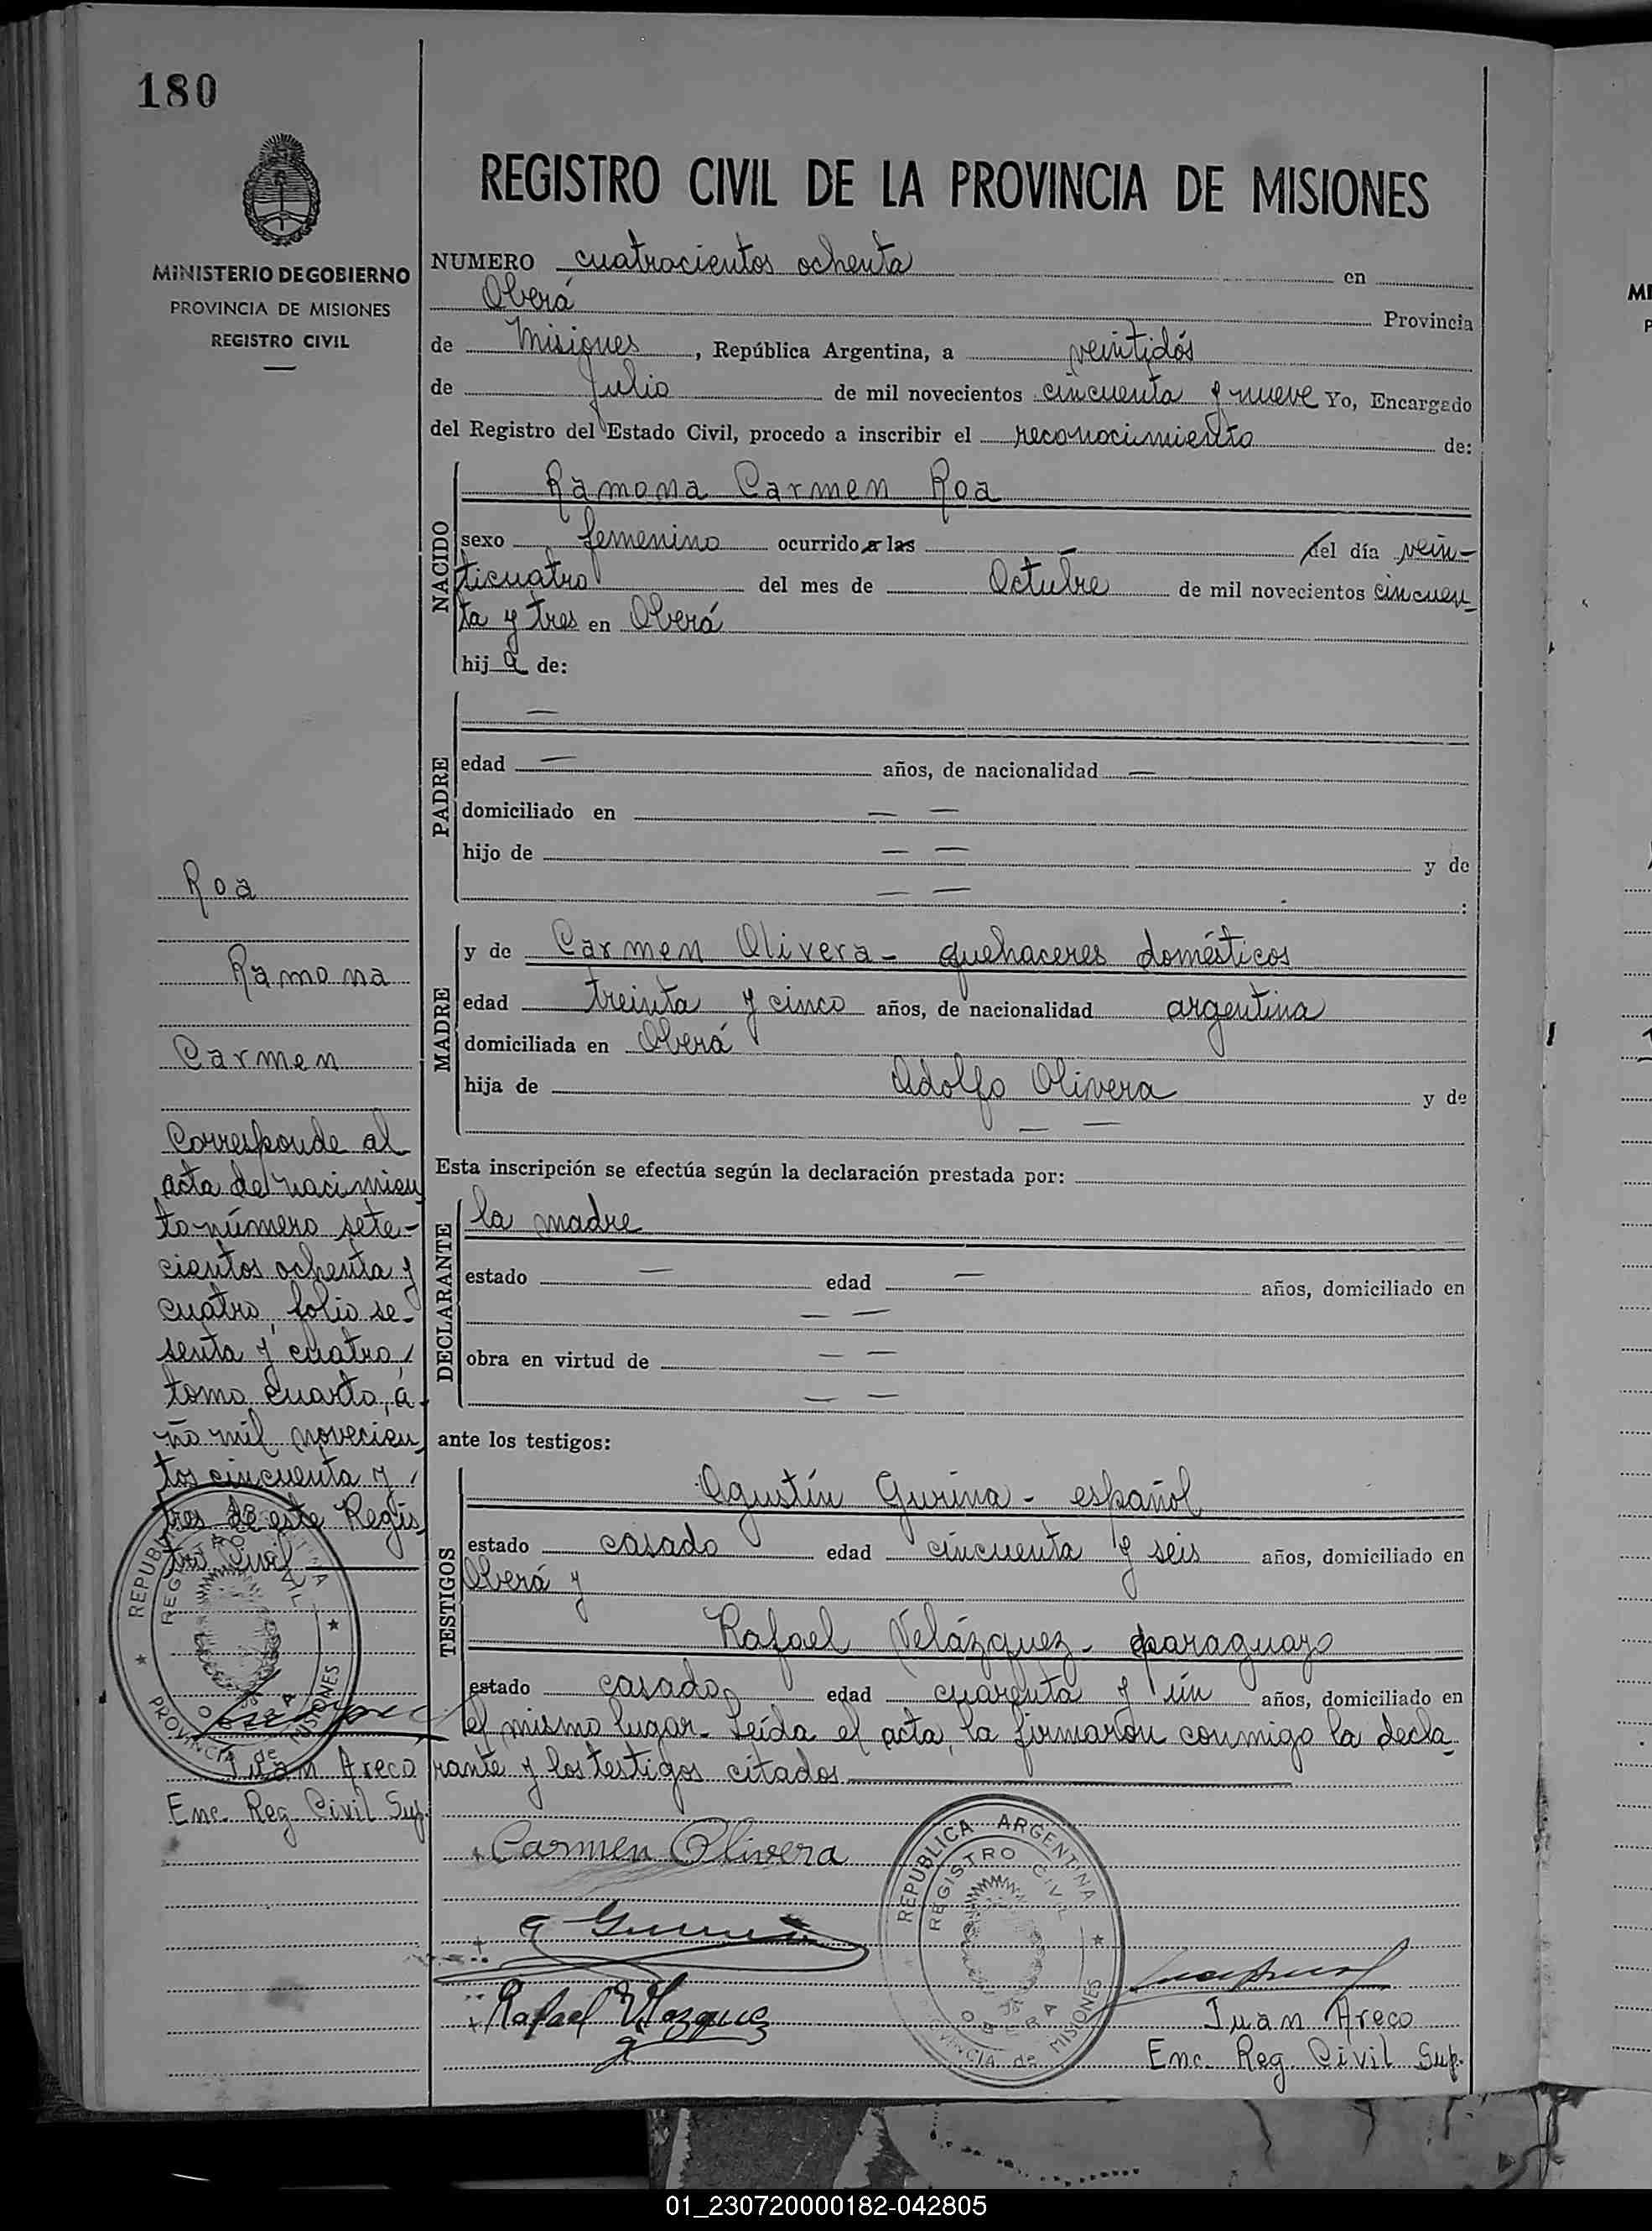 180
MINISTERIO DE GOBIERNO
PROVINCIA DE MISIONES
REGISTRO CIVIL
Roa
Ramona
Carmen
Corresponde al
acta de nacimien
to número sete-
cientos ochenta y
cuatro, folio se-
senta y cuatro,
tomo cuarto, a-
ño mil novecien
tos cincuenta y
tres de este Regis
tro Civil
REPUBLICA ARGENTINA
REGISTRO CIVIL
OBERA
PROVINCIA de MISIONES
Juan Areco
Enc. Reg. Civil Sup.
REGISTRO CIVIL DE LA PROVINCIA DE MISIONES
NUMERO cuatrocientos ochenta en
Oberá Provincia
de Misiones, República Argentina, a veintidós
de Julio de mil novecientos cincuenta y nueve Yo, Encargado
del Registro del Estado Civil, procedo a inscribir el reconocimiento de:
NACIDO
Ramona Carmen Roa
sexo femenino ocurrido a las del día vein-
ticuatro del mes de Octubre de mil novecientos cincuen
ta y tres en Oberá
hija de:
PADRE
—
edad — años, de nacionalidad —
domiciliado en — —
hijo de — — y de
— — :
MADRE
y de Carmen Olivera - quehaceres domésticos
edad treinta y cinco años, de nacionalidad argentina
domiciliada en Oberá
hija de Adolfo Olivera y de
— —
Esta inscripción se efectúa según la declaración prestada por:
DECLARANTE
la madre
estado — edad — años, domiciliado en
— —
obra en virtud de — —
— —
ante los testigos:
TESTIGOS
Agustín Gurina - español
estado casado edad cincuenta y seis años, domiciliado en
Oberá y
Rafael Velázquez - paraguayo
estado casado edad cuarenta y ún años, domiciliado en
el mismo lugar - Leída el acta, la firmaron conmigo la decla
rante y los testigos citados
Carmen Olivera
Rafael Vlazquez
REPUBLICA ARGENTINA
REGISTRO CIVIL
OBERA
PROVINCIA de MISIONES
Juan Areco
Enc. Reg. Civil Sup.
01_230720000182-042805